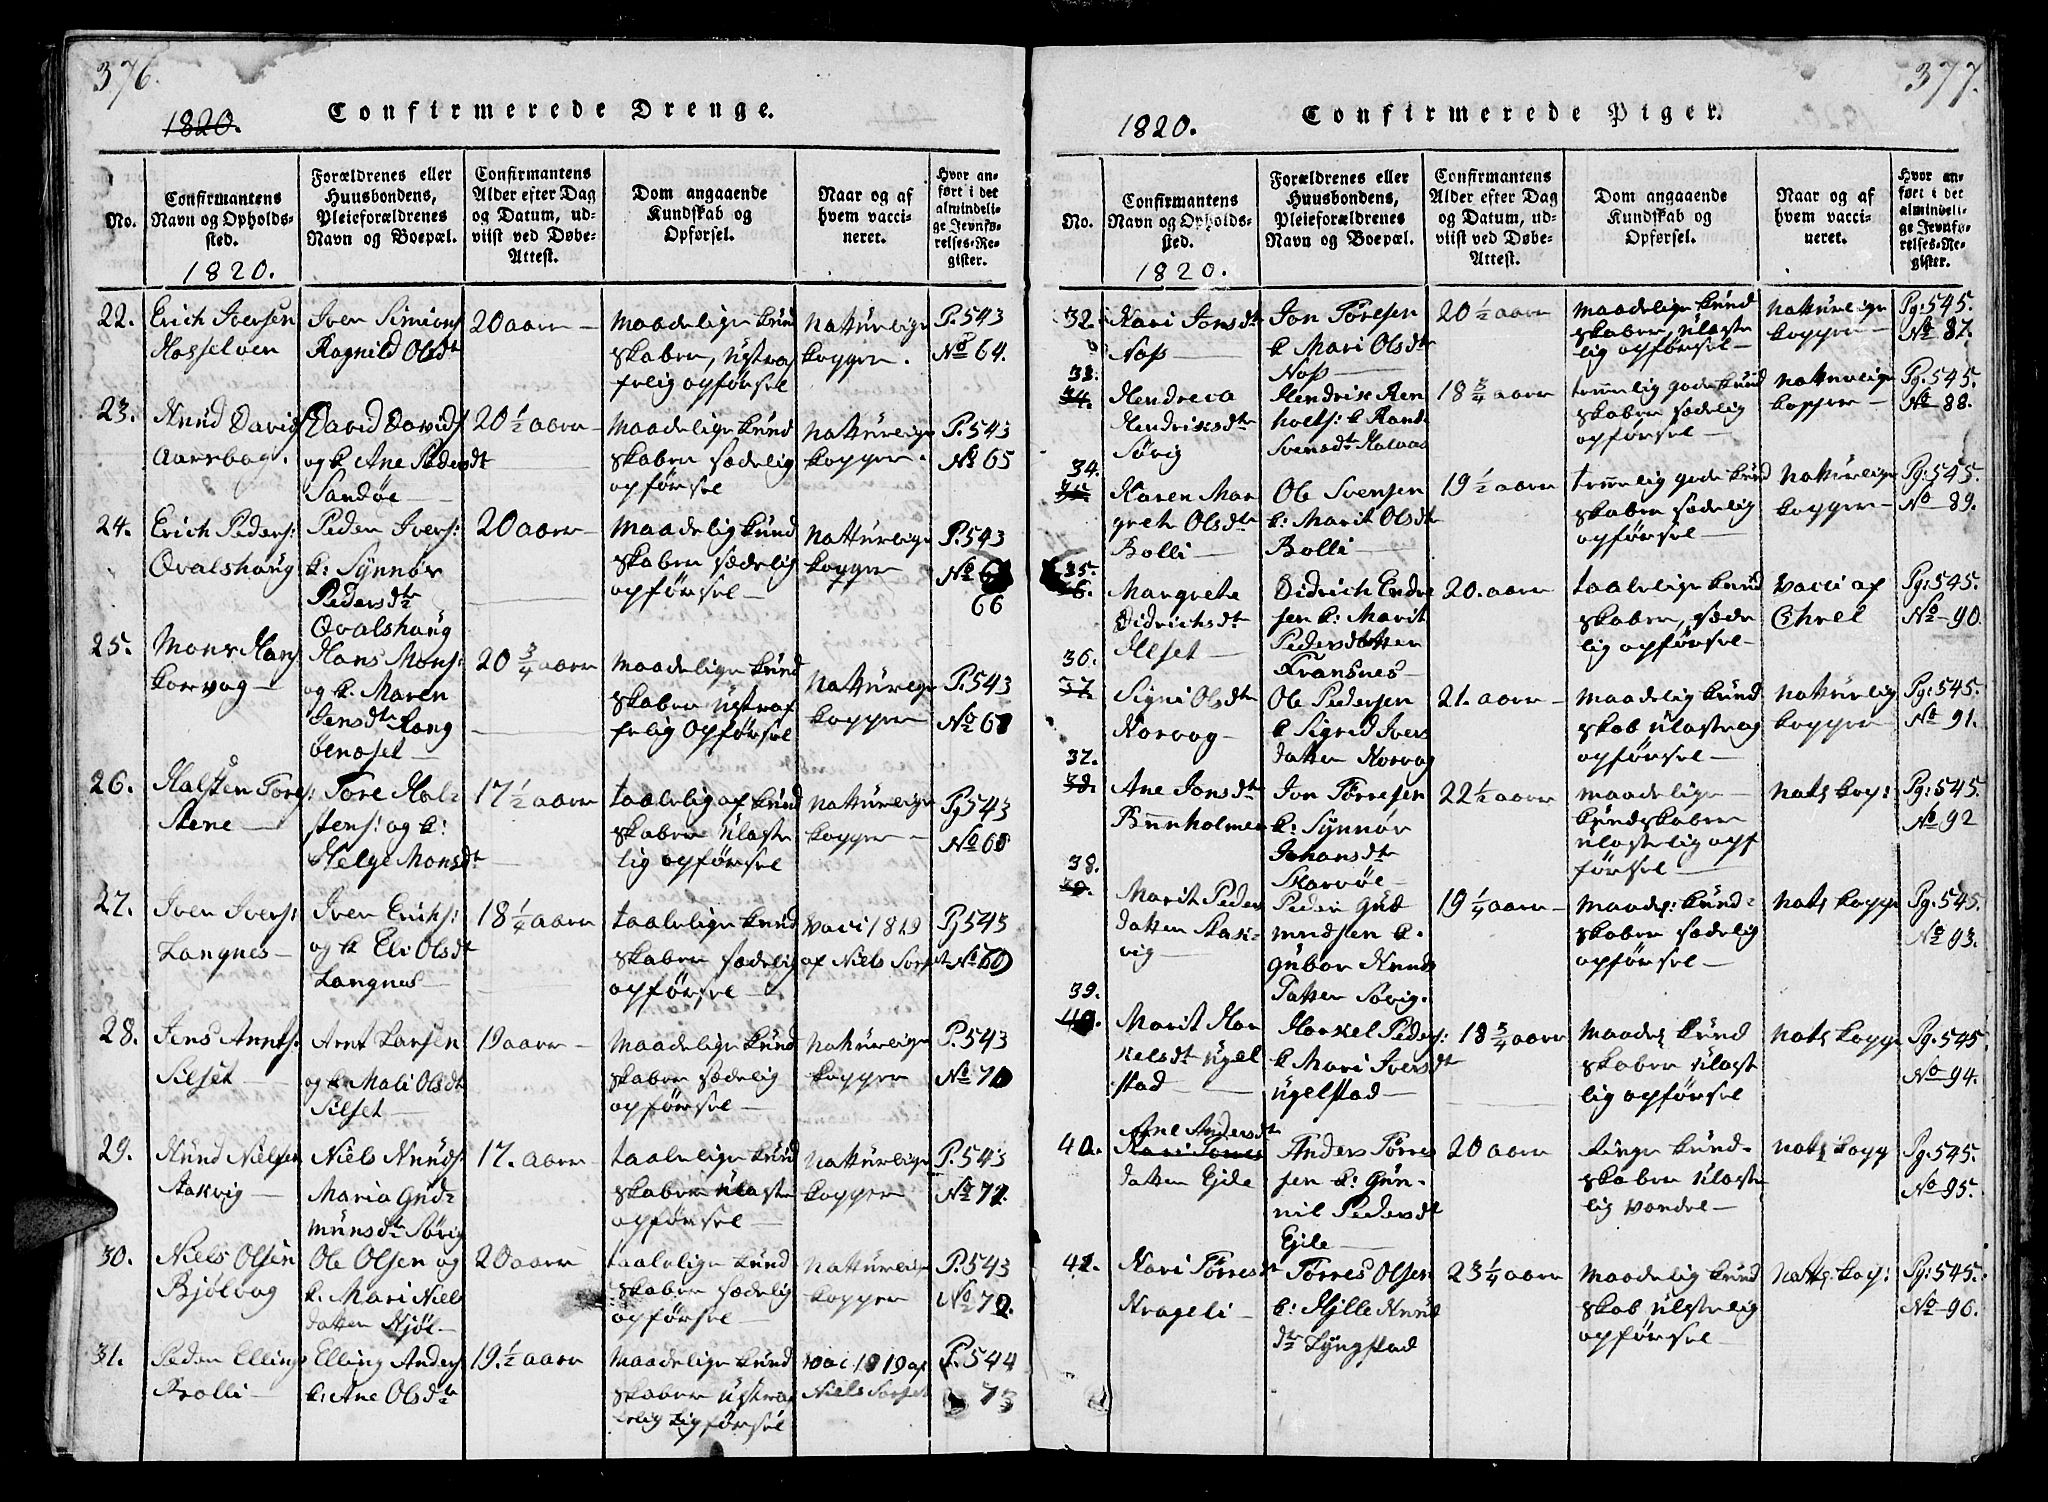 376.
1820. Confirmerede Drenge.
No.
Confirmantens
Navn og Opholds-
sted.
1820.
Forældrenes eller
Huusbondens,
Pleieforældrenes
Navn og Boepæl.
Confirmantens
Alder efter Dag
og Datum, ud-
viist ved Døbe-
Attest.
Dom angaaende
Kundskab og
Opførsel.
Naar og af
hvem vacci-
neret.
Hvor an-
ført i det
almindeli-
ge Jevnfø-
relses-Re-
gister.
22.
Erich Iversen
Hasseløen
Iver Simions
Ragnild Olsdt
20 aar
maadelige kund
skaber, ustraf
felig opførsel
natturlige
kopper.
P. 543
No 64.
23.
Knud Davids
Aarsbog.
David Davids
og k. Ane Pedersdt
Sandøe
20 1/2 aar
maadelige kund
skaber sædelig
opførsel
natturlige
kopper.
P. 543
No 65
24.
Erich Peders:
Qvalshaug
Peder Ivers:
k: Synnøv
Pedersdtr
Qvalshaug
20 aar
maadelig kund
skaber sædelig
opførsel
natturlige
kopper
P. 543
No 6
66
25.
Mons Hans
korvog
Hans Mons:
og k. Maren
Jensdtr Rang
øenæset
20 3/4 aar
maadelige kund
skaber ustraf
felig Opførsel
natturlige
kopper
P. 543
No 67
26.
Halsten Tores:
Stene
Tore Hal-
stens: og k:
Helge Monsdt
17 1/2 aar
taalelig af kund
skaber ulaste
lig opførsel
natturlige
kopper
Pg 543
No 68
27.
Iver Ivers:
Langnes
Iver Erichs:
og k Eli Olsdt
Langnes
18 1/4 aar
taalelige kund
skaber sædelig
opførsel
vaci 1819
af Niels Sorset
Pg 543
No 69
28.
Jens Arnts:
Silset
Arnt Larsen
og k. Mali Olsdt
Silset
19 aar
maadelige kund
skaber sædelig
opførsel
naturlige
kopper
P. 543
No 70
29.
Knud Nielsen
Stakvig
Niels Knuds
Maria Gud-
munsdtr Sørig
17. aar
taalelige kund
skaber ulaste
opførsel
natturlige
kopper
P. 543
No 71.
30.
Niels Olsen
Bjølvog
Ole Olsen og
k. Mari Niels
datter Kjøl
20 aar
taalelige kund
skaber sædelig
opførsel
natturlige
kopper
P. 543
No 72.
31.
Peder Ellings
Brolli
Elling Anders
k: Ane Olsdtr
19. 1/2 aar
maadelige kund
skaber ustraf
felig opførsel
vaci 1819 af
Niels Sorset
P. 544
73
377.
1820. Confirmerede Piger.
No.
Confirmantens
Navn og Opholds-
sted.
1820.
Forældrenes eller
Huusbondens,
Pleieforældrenes
Navn og Boepæl.
Confirmantens
Alder efter Dag
og Datum, ud-
viist ved Døbe-
Attest.
Dom angaaende
Kundskab og
Opførsel.
Naar og af
hvem vacci-
neret.
Hvor an-
ført i det
almindeli-
ge Jevnfø-
relses-Re-
gister.
32.
Kari Jonsdt
Nos
Jon Toresen
k Mari Olsdt
Nos
20 1/2 aar
maadelige kund
skaber, ulaste
lig opførsel
natturlige
kopper
Pg: 545.
No 87.
33.
34.
Hendrica
Hendriksdt
Sørig
Hendrik Ren
holts: k Rand
Svensdt Kalvaa
18 3/4 aar
temmelig gode kund
skaber sædelig
opførsel
natturlige
kopper
Pg. 545.
No 88.
34.
35.
Karen Mar
grete Olsdtr
Bolli
Ole Svensen
k: Marit Olsdt
Bolli
19 1/2 aar
temmelig gode kund
skaber sædelig
opførsel
natturlige
kopper
Pg: 545.
No 89.
35.
36.
Margrete
Didrichsdt
Ilset
Didrich Endre
sen k: Marit
Pedersdatter
Fransnes
20. aar
taalelige kund
skaber, sæde
lig opførsel
Vacci af
Ehrel
Pg: 545.
No 90.
36.
37.
Signi Olsdt
Korvog
Ole Pedersen
k Sigrid Ivers
datter Korvog
21. aar
maadelig kund
skab ulastelig
opførsel
natturlig
kopper
Pg: 545.
No 91.
37.
38.
Ane Jonsdt
Bunholmen
Jon Torresen
k: Synnøv
Johansdt
Skarvøe
22 1/2 aar
maadelige
kundskaber
ulastelig opf
førsel
nats kop:
Pg: 545.
No 92
38.
39.
Marit Peder
datter Stak-
vig
Peder Gud
mundsen k.
Gubor Knuds
Datter Sørig.
19 1/4 aar
maades: kund-
skaber sædelig
opførsel
nats kopp
Pg. 545.
No 93.
39.
40.
Marit Har
kelsdt Ugel
stad
Harkel Peders:
k Mari Iversdt
Ugelstad
18 3/4 aar
maades kund
skaber ulast
lig opførsel
nats kopp
Pg. 545.
No 94.
40.
Ane Andersdt
Kari Torres
datter Ejde
Anders Torres
sen k: Gun-
nil Pedersdt
Ejde
20 aar
Ringe kund-
skaber ulaste
lig vandel
nats kopp
Pg. 545.
No 95.
41.
Kari Torresdt
Krageli
Torres Olsen
k: Hille Knud
dtr Lyngstad
23 1/4 aar
maadelig kund
skab ulastelig
opførsel
natts: kop:
Pg: 545.
No 96.